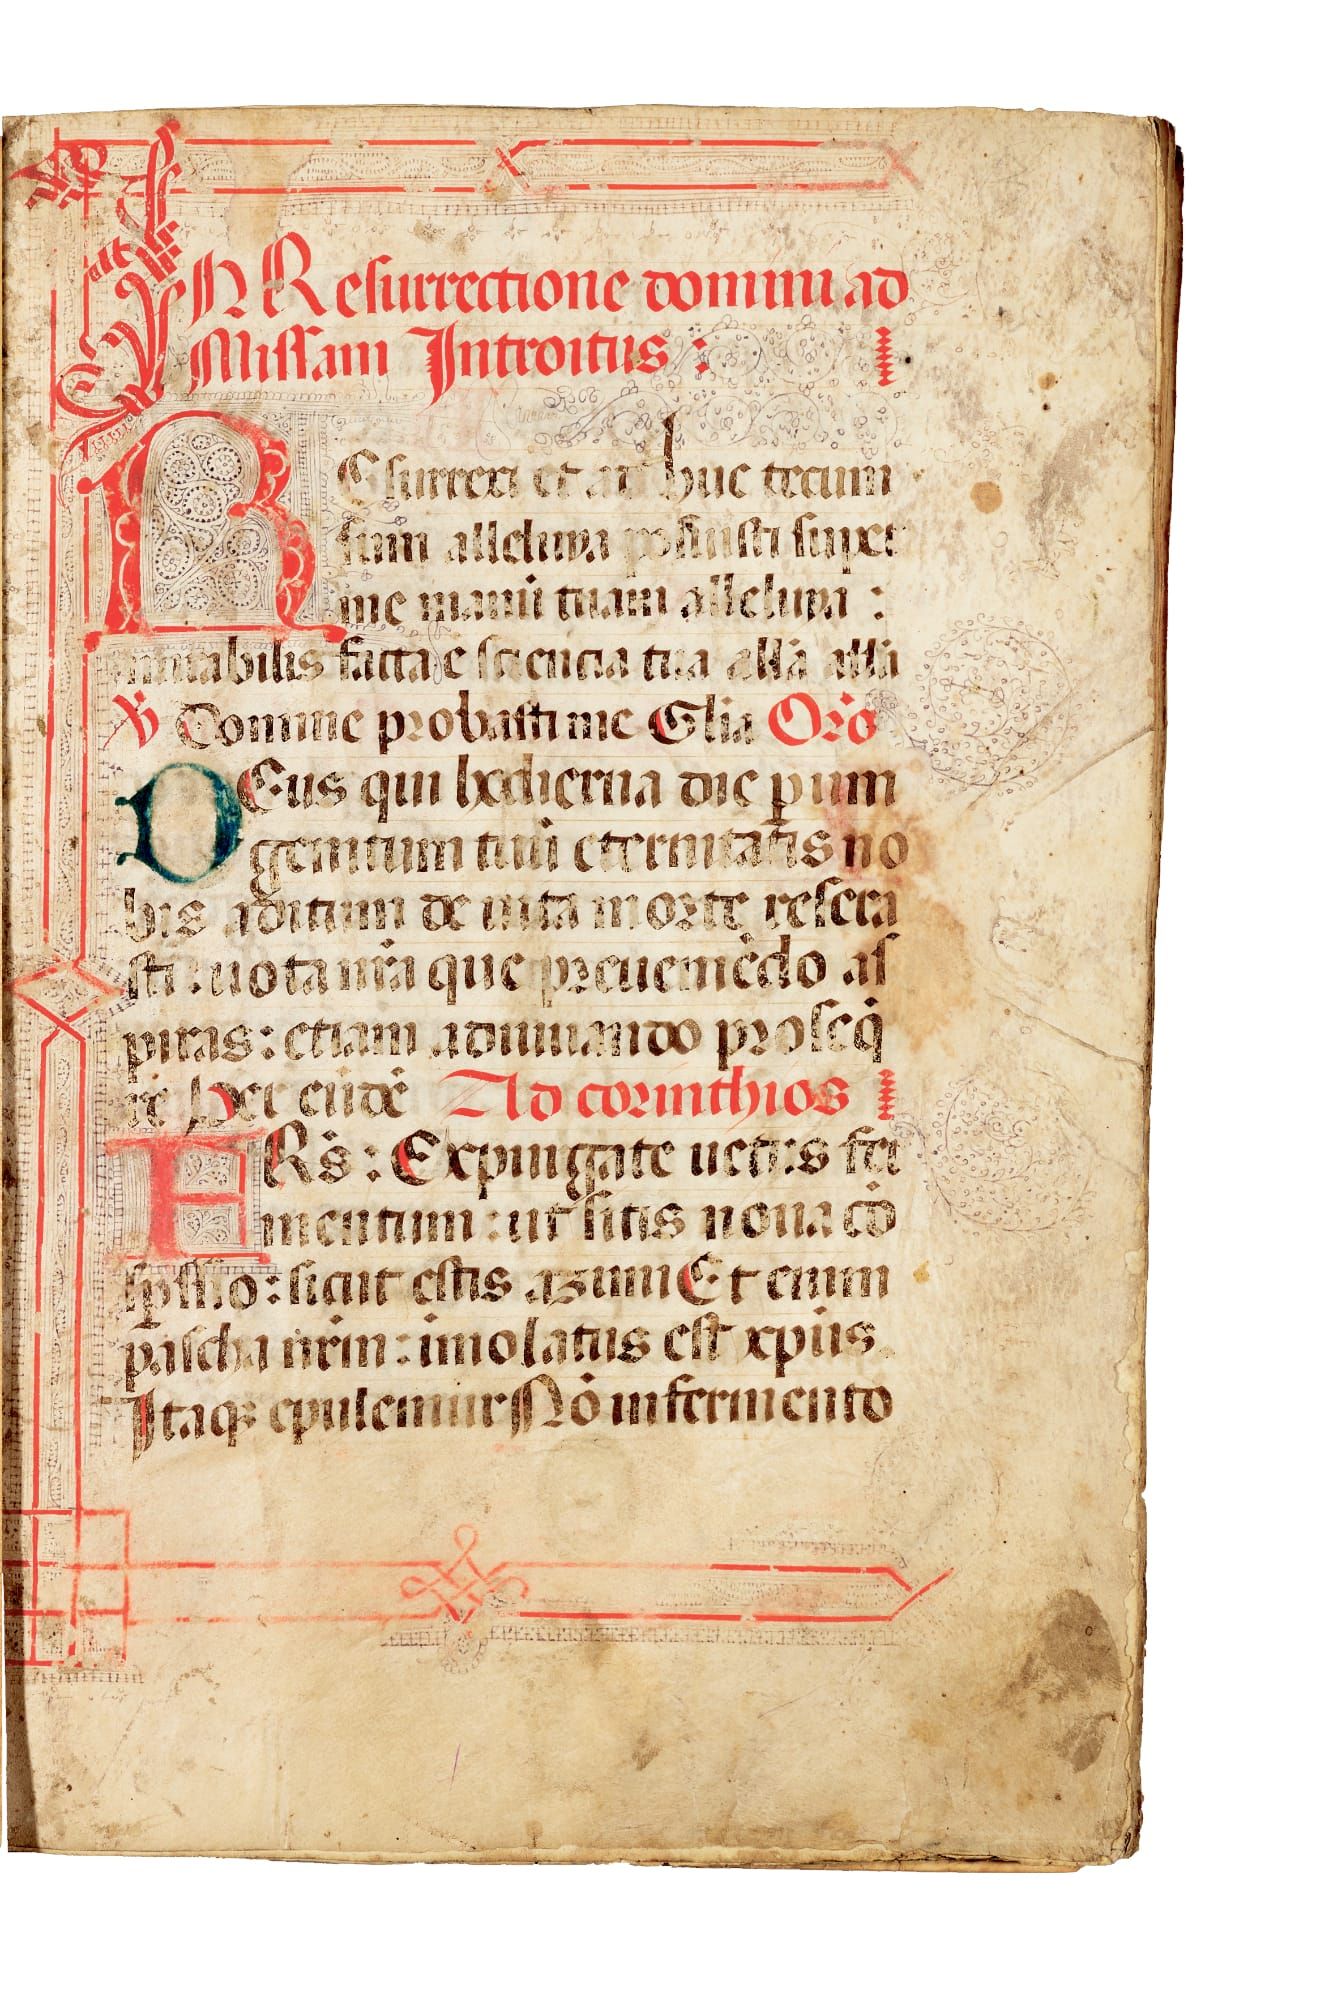 IN Resurrectione domini ad
Missam Introitus :
REsurrexi et ad huc tecum
sum alleluya posuisti super
me manū tuam alleluya :
mirabilis facta ē sciencia tua allā allā
℣ Domine probasti me Glīa Orō
DEus qui hodierna die per uni
genitum tuū eternitatis no
bis aditum de uita morte resera
sti : uota nr̄a que preueniēdo as
piras : etiam adiuuando proseq̄
re Per eūdē Ad corinthios
FRs̄ : Expurgate uetus fer
mentum : ut sitis noua cō
sꝑssio : sicut estis azimi Et enim
pascha nrm̄ : imolatus est xpūs
Itaqꝫ epulemur Nō in fermento